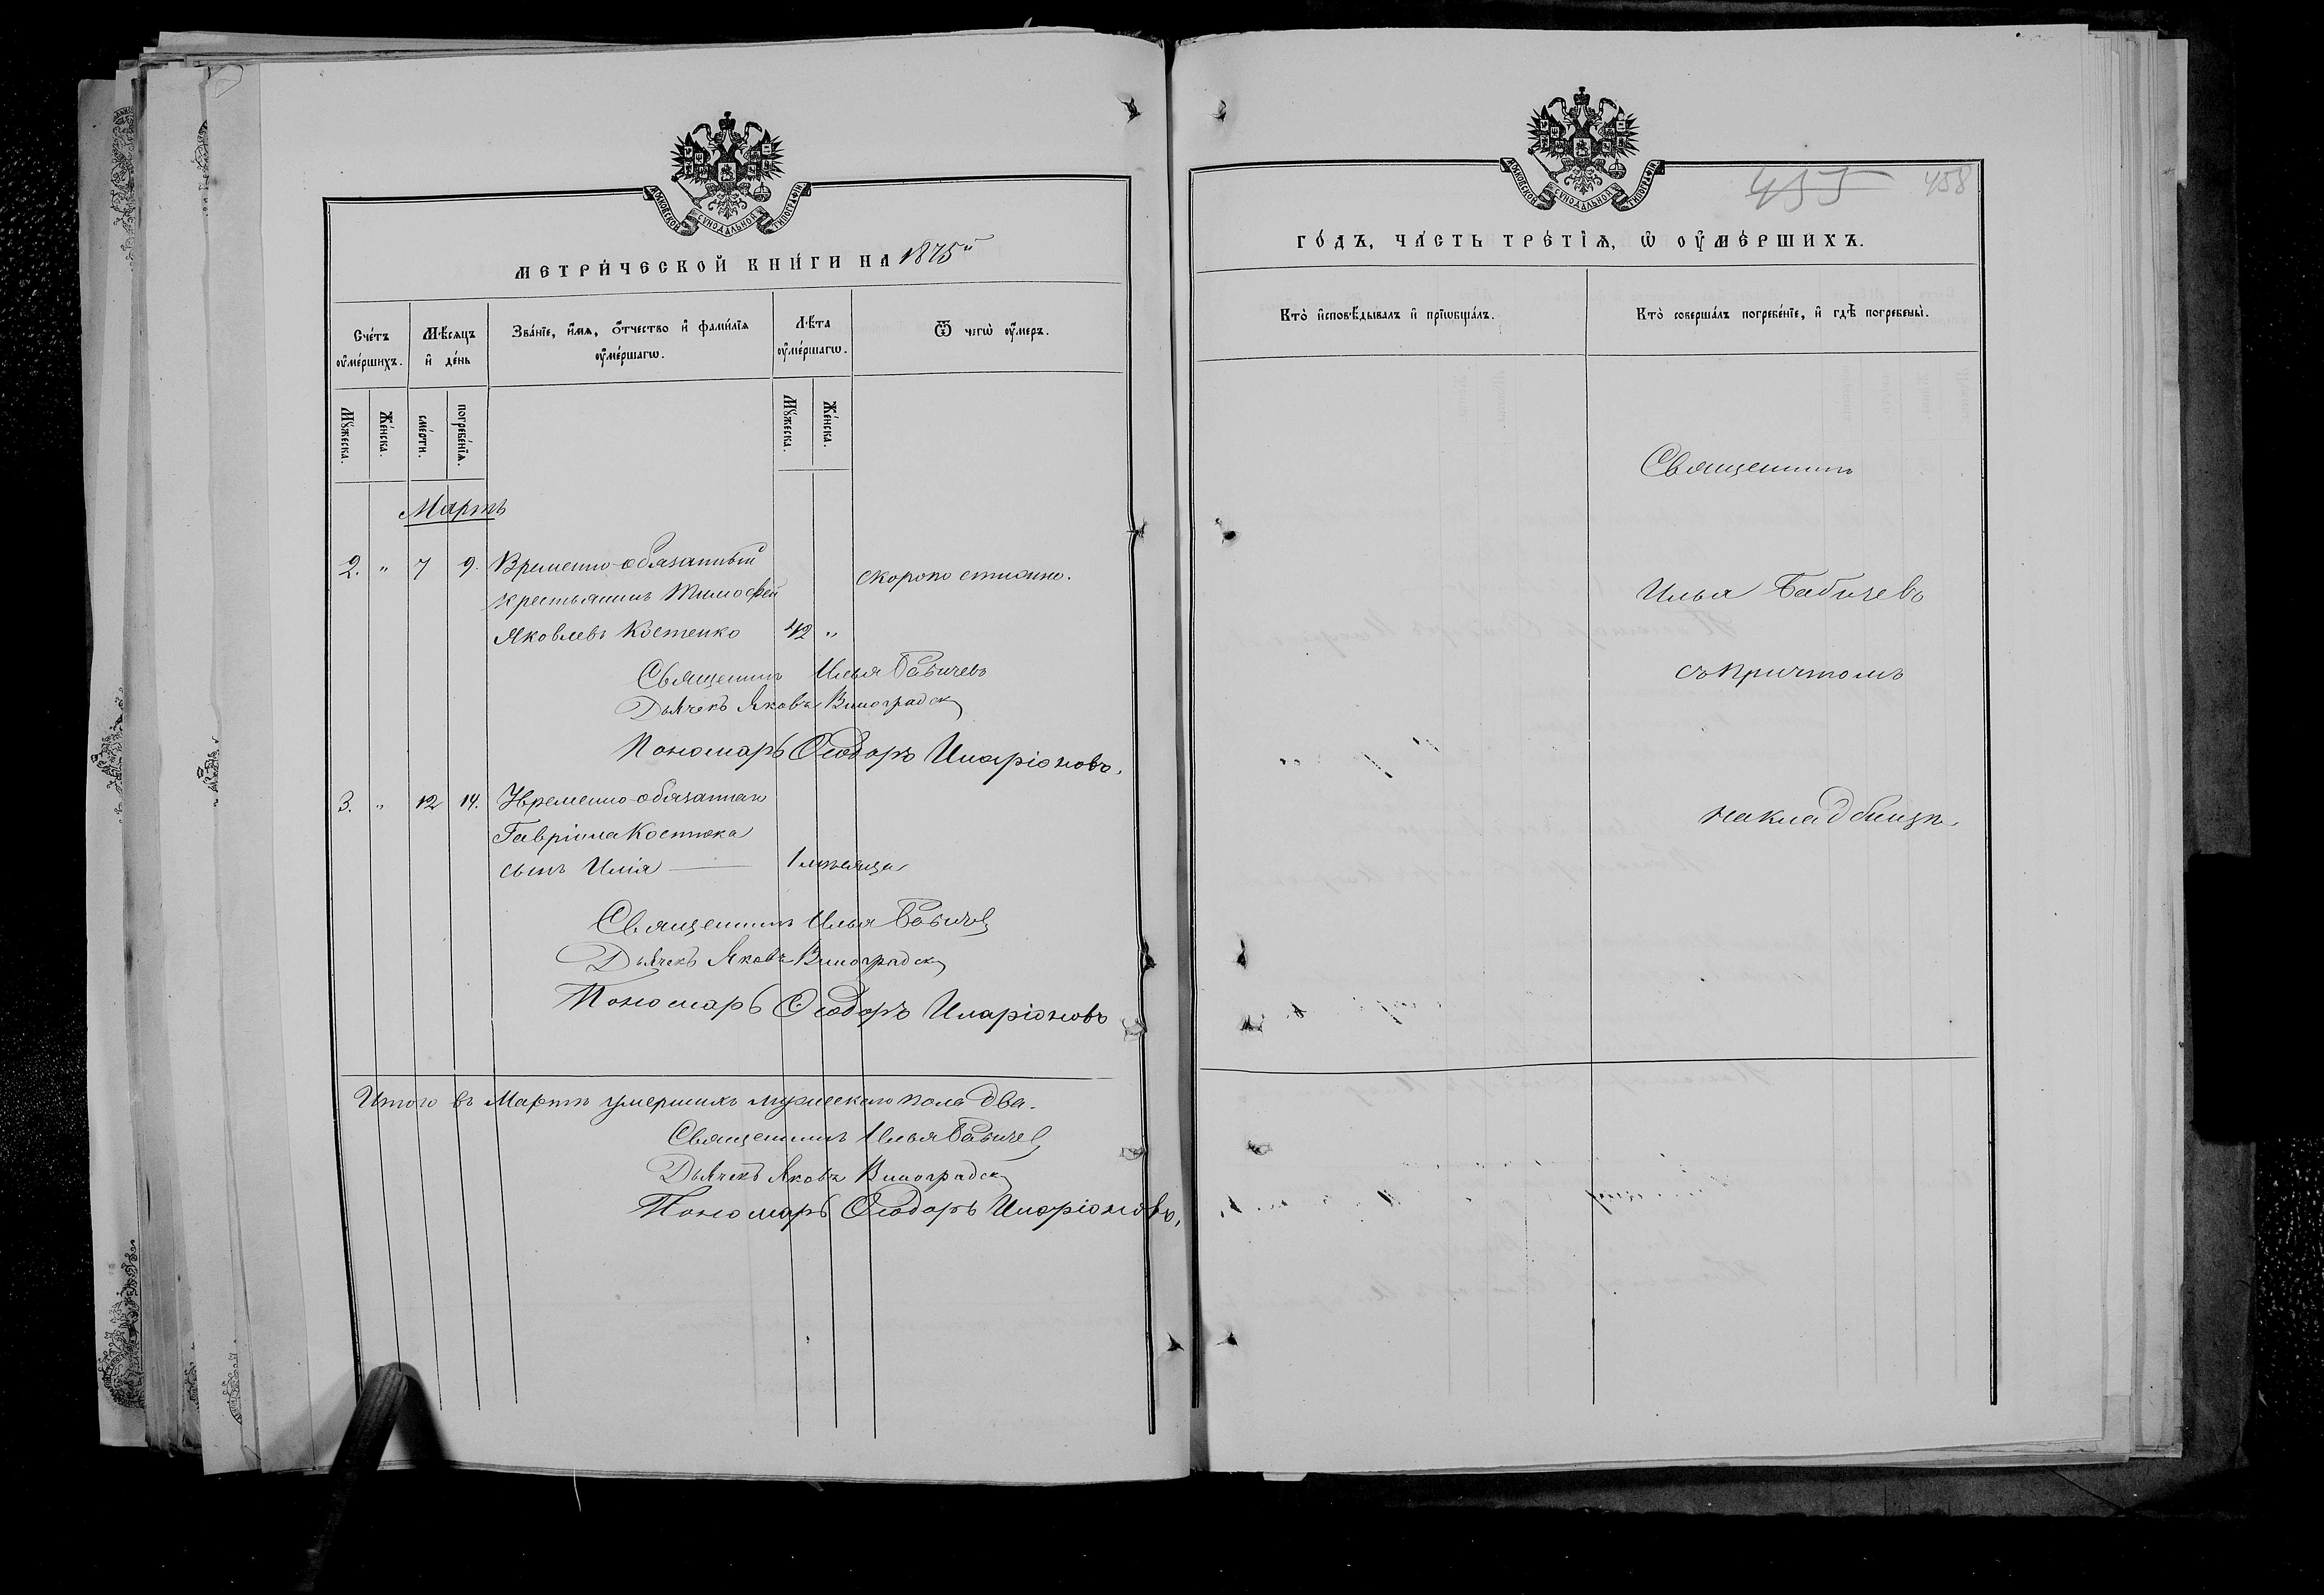 МОСКОВСКОЙ СѴНОДАЛЬНОЙ ТИПОГРАФІИ
МЕТРИ́ЧЕСКОЙ КНИ́ГИ НА 1875й
Сче́тъ оу҆ме́ршихъ.
Мѣ́сяцъ и҆ де́нь
Зва́нїе, и҆́мѧ, ѻ҆́тчество и҆ фами́лїѧ оу҆ме́ршагѡ.
Лѣ́та оу҆ме́ршагѡ.
Ѿ чегѡ̀ оу҆́меръ.
Мꙋ́жеска.
Же́нска.
сме́рти.
погребе́нїѧ.
Мꙋ́жеска.
Же́нска.
Мартъ
2. " 7 9. Временно-обязанный
крестьянинъ Тимофей
скоропостижно.
Яковлевъ Костенко 42 "
Священникъ Илья Бабичевъ
Дьячекъ Яковъ Виноградск
Пономарь Ѳеодоръ Иларіоновъ.
3. " 12 14. Увременно-обязаннаго
Гавріила Костюка
сынъ Илія 1 мѣсяца
Священникъ Илья Бабичев
Дьячекъ Яковъ Виноградск
Пономарь Ѳеодоръ Иларіоновъ
Итого въ Мартѣ умершихъ мужескаго пола два.
Священникъ Илья Бабичев
Дьячекъ Яковъ Виноградск
Пономарь Ѳеодоръ Иларіоновъ.
МОСКОВСКОЙ СѴНОДАЛЬНОЙ ТИПОГРАФІИ
455 458
ГО́ДЪ, ЧА́СТЬ ТРЕ́ТЇѦ, Ѡ҆ ОУ҆МЕ́РШИХЪ.
Кто̀ и҆сповѣ́дывалъ и҆ прїѡбща́лъ.
Кто̀ соверша́лъ погребе́нїе, и҆ гдѣ̀ погребены̀.
Священникъ
Илья Бабичевъ
съ причтомъ
на кладбищѣ.